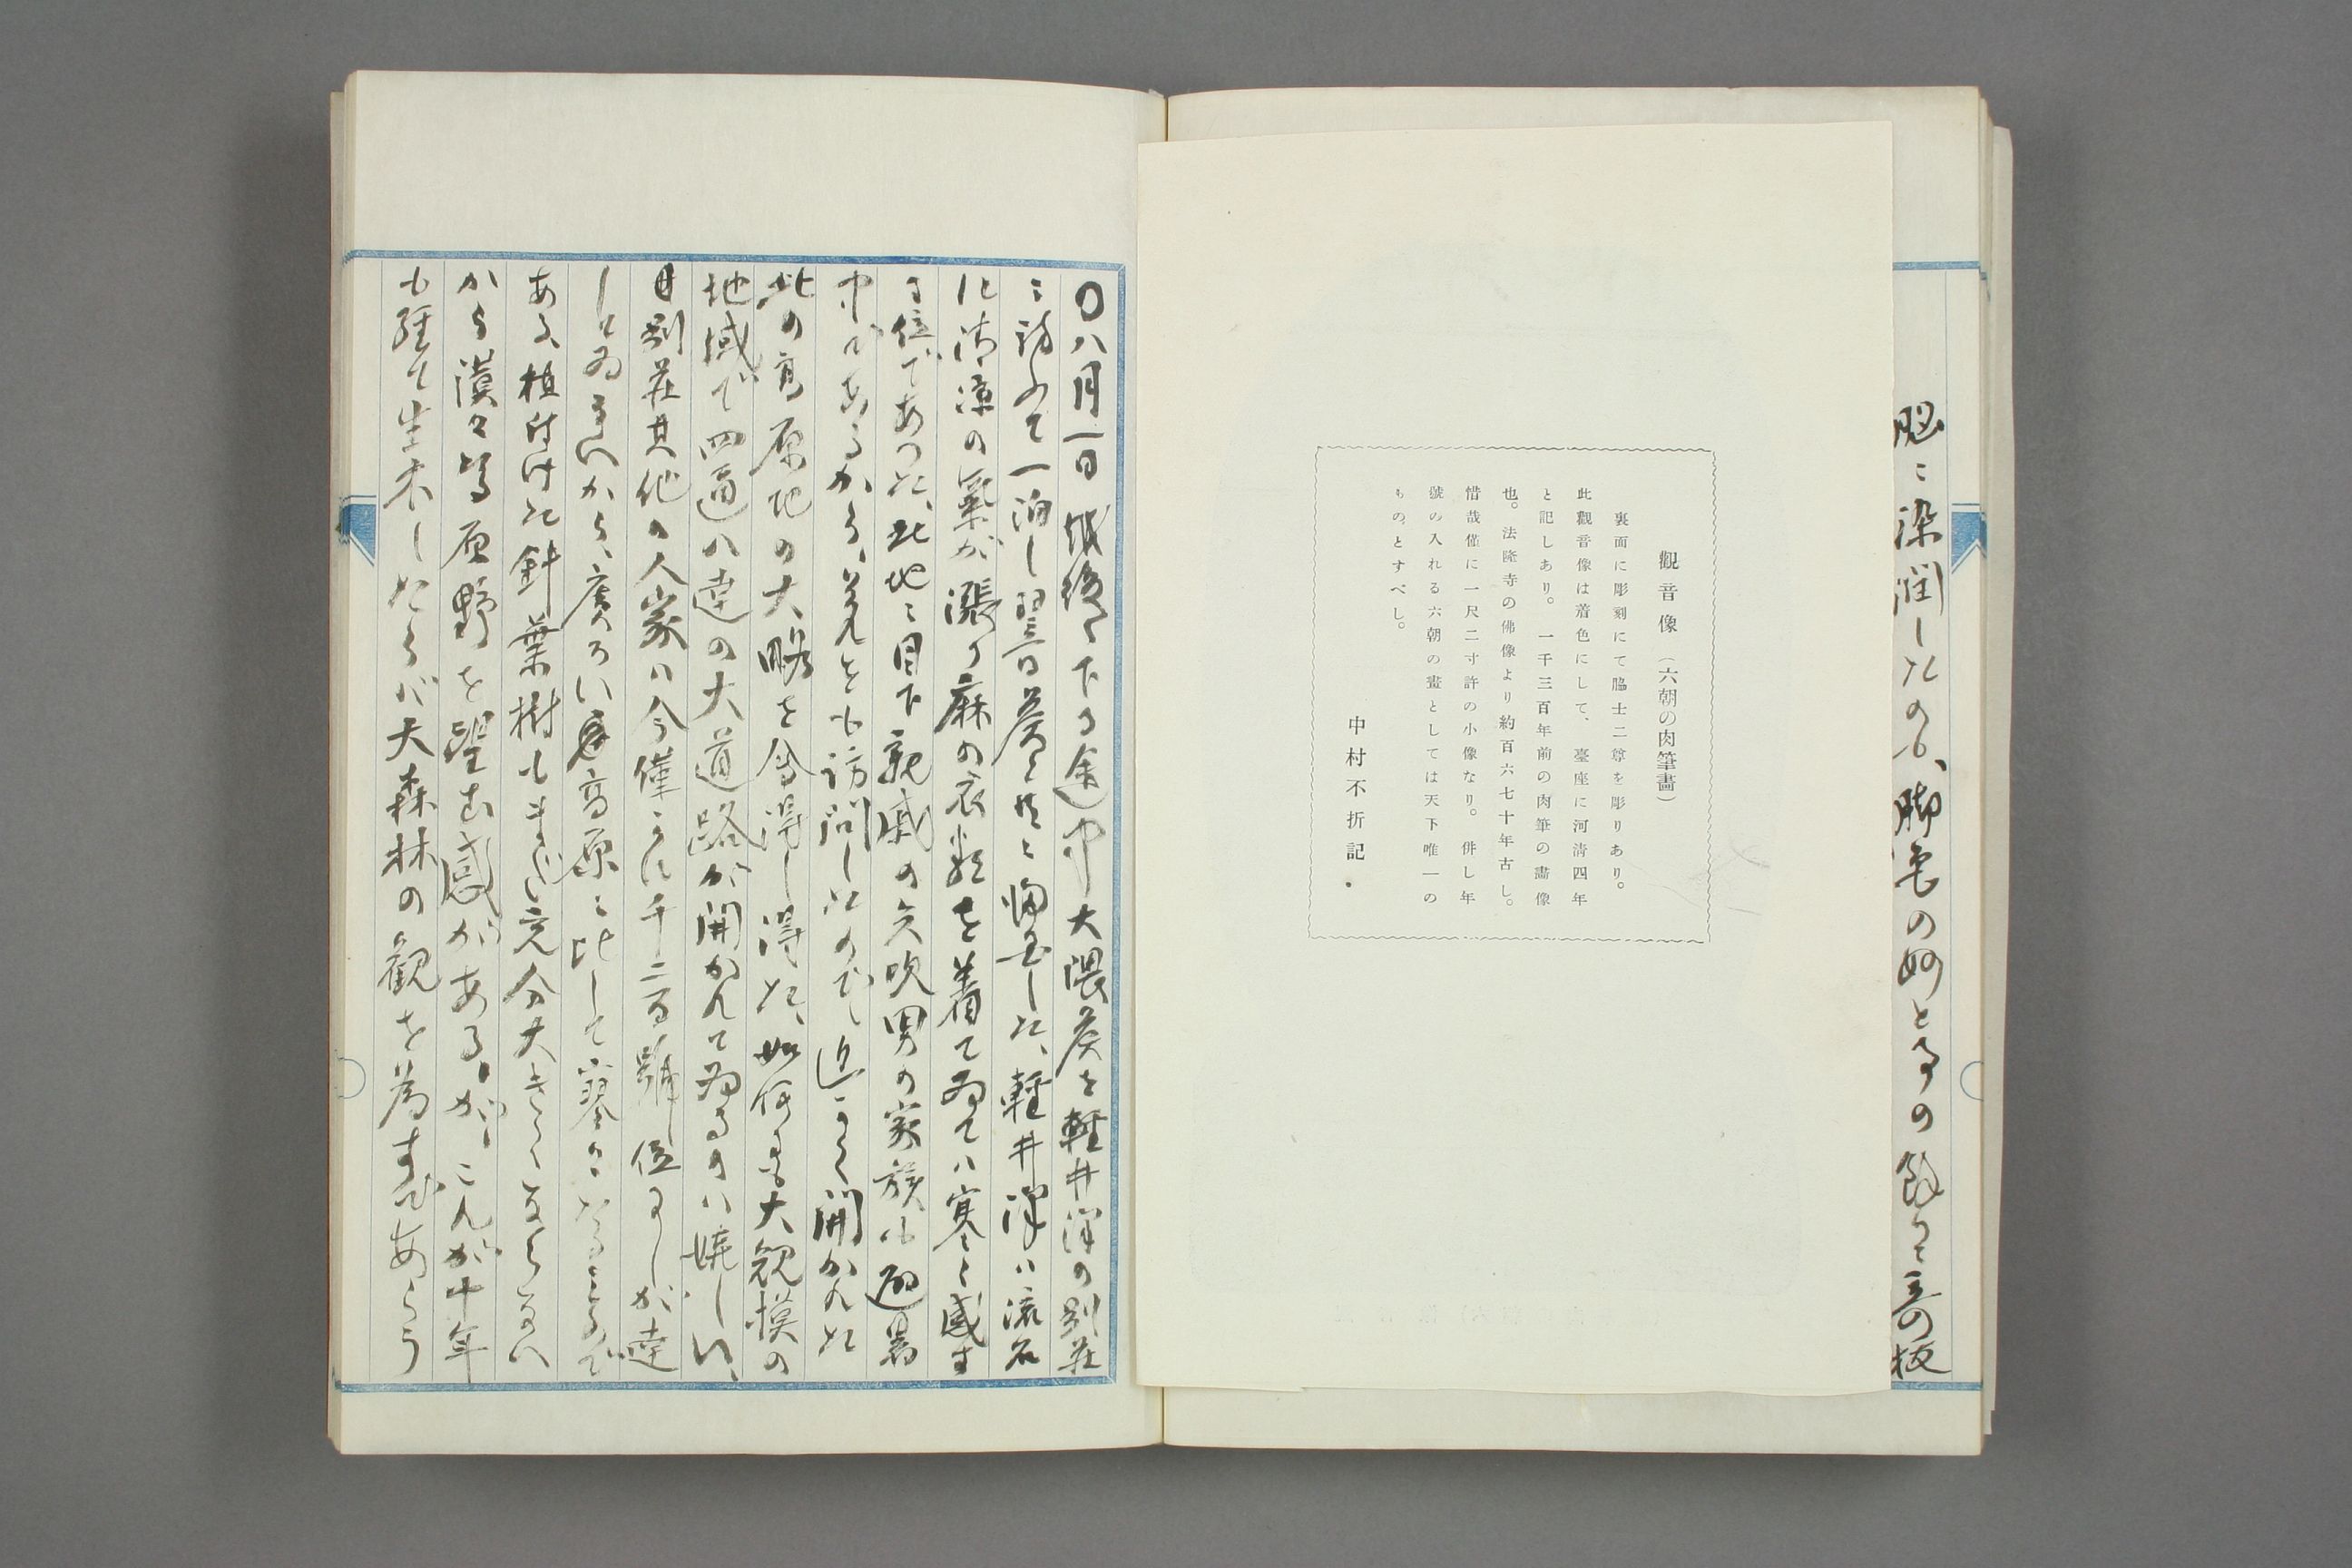 脳ニ染潤したのも、脚色の妙と挿の
觀音像（六朝の肉筆畫）
裏面に彫刻にて脇士二尊を彫りあり。
此觀音像は着色にして、臺座に河淸四年
と記しあり。一千三百年前の肉筆の畫像
也。法隆寺の佛像より約百六七十年古し。
惜哉僅に一尺二寸許の小像なり。併し年
號の入れる六朝の畫としては天下唯一の
ものとすべし。
中村不折記
〇八月一日越後へ下る途中大隈侯を軽井澤の別荘
ニ訪ふて一泊し翌日侯と共ニ帰京した、軽井澤ハ流石
に清凉の氣が漲り麻の衣類を着てゐてハ寒く感す
る位であつた、此地ニ目下親戚の矢吹男の家族も避暑
中であるから、それをも訪問したので、近く開かれた
此の高原地の大略を會得し得た、如何にも大規模の
地域で四通八達の大道路が開かれてゐるのハ嬉しい、
別荘其他の人家ハ今僅に千二百號位しか達
してゐないから、廣ろい高原ニ比して寥々たるもので
ある、植付けた針葉樹もまだ充分大きくならない
から漠々たる原野を望む感がある、が、これが十年
も経て生長したらバ大森林の観を為すであらう